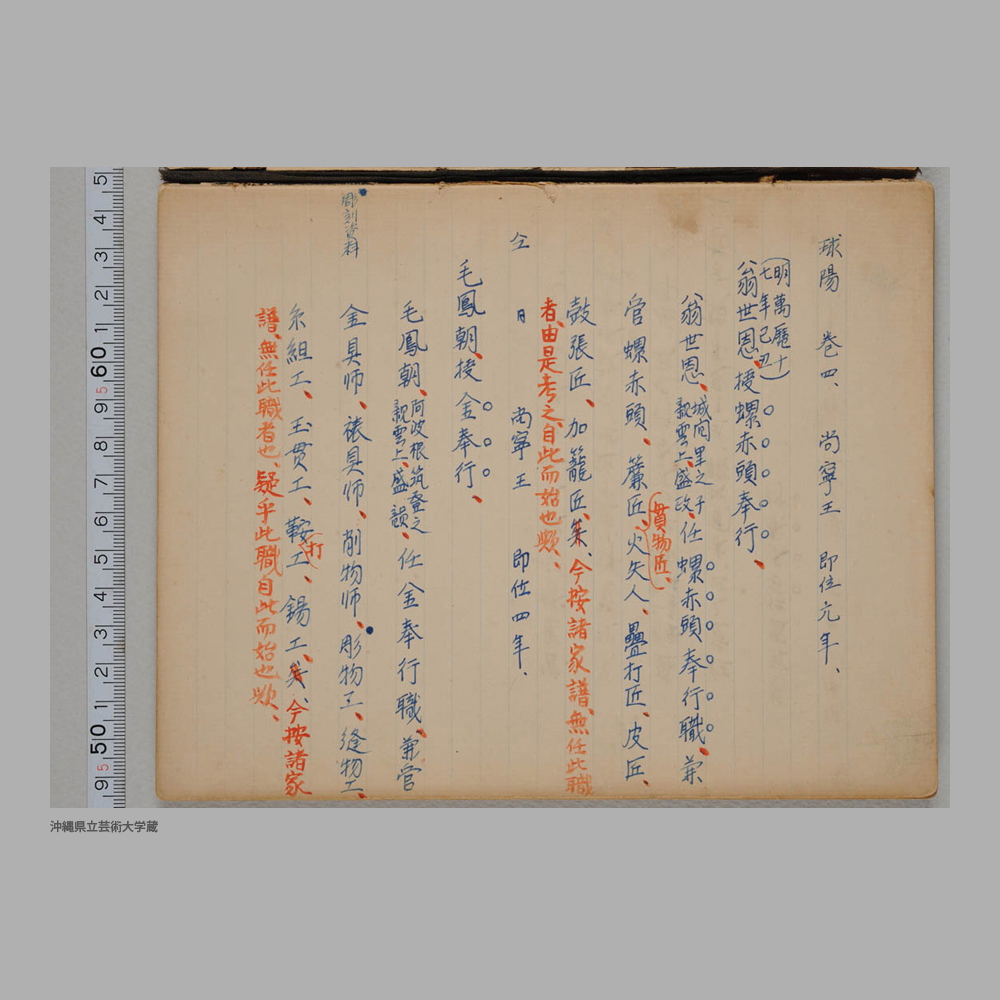 球陽　巻四、　尚寧王　即位元年、
(明萬曆十七年己丑)
翁世恩、授螺赤頭奉行、
翁世恩、城間里之子親雲上、盛政、任螺赤頭奉行職、兼
管螺赤頭、簾匠、火矢人、疊打匠、皮匠、
(貫物匠、)
鼓張匠、加籠匠、矣、今按諸家譜、無任此職
者、由是考之、自此而始也歟、
仝　日　尚寧王　即位四年、
毛鳳朝、授金奉行、
毛鳳朝、阿波根筑登之親雲上、盛韻、任金奉行職、兼管
彫刻資料
金具师、裱具师、削物师、彫物工、縫物工、
糸組工、玉贯工、鞍工、錫工、矣、今按諸家
(打
譜、無任此職者也、疑乎此職自此而始也歟、
5 4 3 2 1 60 9 8 7 6 5 4 3 2 1 50 9
5 5
沖縄県立芸術大学蔵